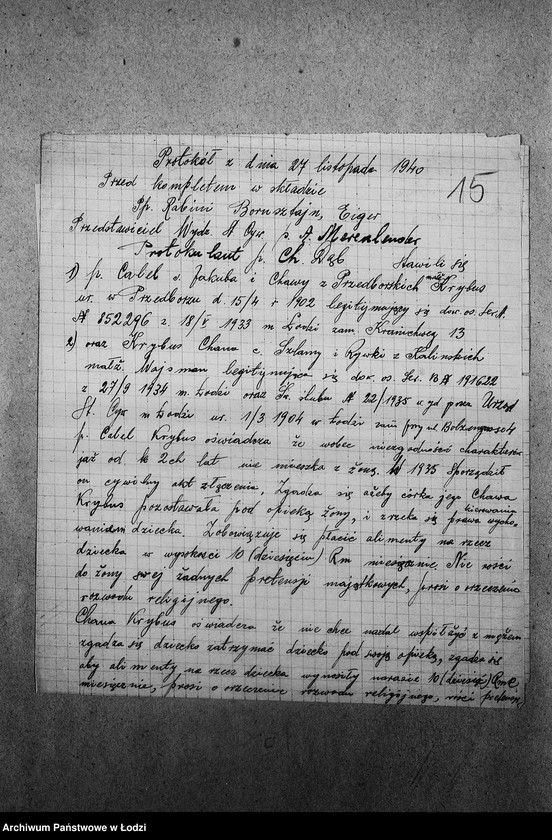 15
Protokół z dnia 27 listopada 1940
Przed kompletem w składzie
Pp. Rabini Bornsztajn, Eiger
Przedstawiciel Wydz. St Cyw. p. A. Merenlender
Protokulant p. Ch. Dąb stawili się
1) p. Calel s. Jakuba i Chawy z Przedborskich małż Krybus
ur. w Przedborzu d. 15/4 r 1902 legitymujący się dow. os. Ser. A.
№ 852296 z. 18/V 1933 m Łodzi zam. Kranichweg 13
2) oraz Krybus Chana c. Szlamy i Rywki z Kalinskich
małż. Wajsman legitymująca się dow. os. Ser. BA 191622
z 27/9 1934 m. Łodzi oraz Św. ślubu № 22/1935 wyd przez Urząd
St. Cyw m Łodzi ur. 1/3 1904 w Łodzi zam przy ul Bolzengasse 4
p. Calel Krybus oświadcza że wobec niezgodności charakterów
już od 2ch lat nie mieszka z żoną. W 1935 sporządził
on cywilny akt złączenia, Zgadza się ażeby córka jego Chawa
Krybus pozostawała pod opieką żony, i zrzeka się prawa kierowania wycho-
waniem dziecka. Zobowiązuje się płacić alimenty na rzecz
dziecka w wysokości 10 (dziesięciu) Rm miesięcznie. Nie rości
do żony swej żadnych pretensji majątkowych, prosi o orzeczenie
rozwodu religijnego.
Chana Krybus oświadcza że nie chce nadal współżyć z mężem
zgadza się dziecko zatrzymać dziecko pod swoją opieką, zgadza się
aby alimenty na rzecz dziecka wynosiły narazie 10 (dziesięć) Rmk
miesięcznie, prosi o orzeczenie rozwodu religijnego, rości pretensje
Archiwum Państwowe w Łodzi